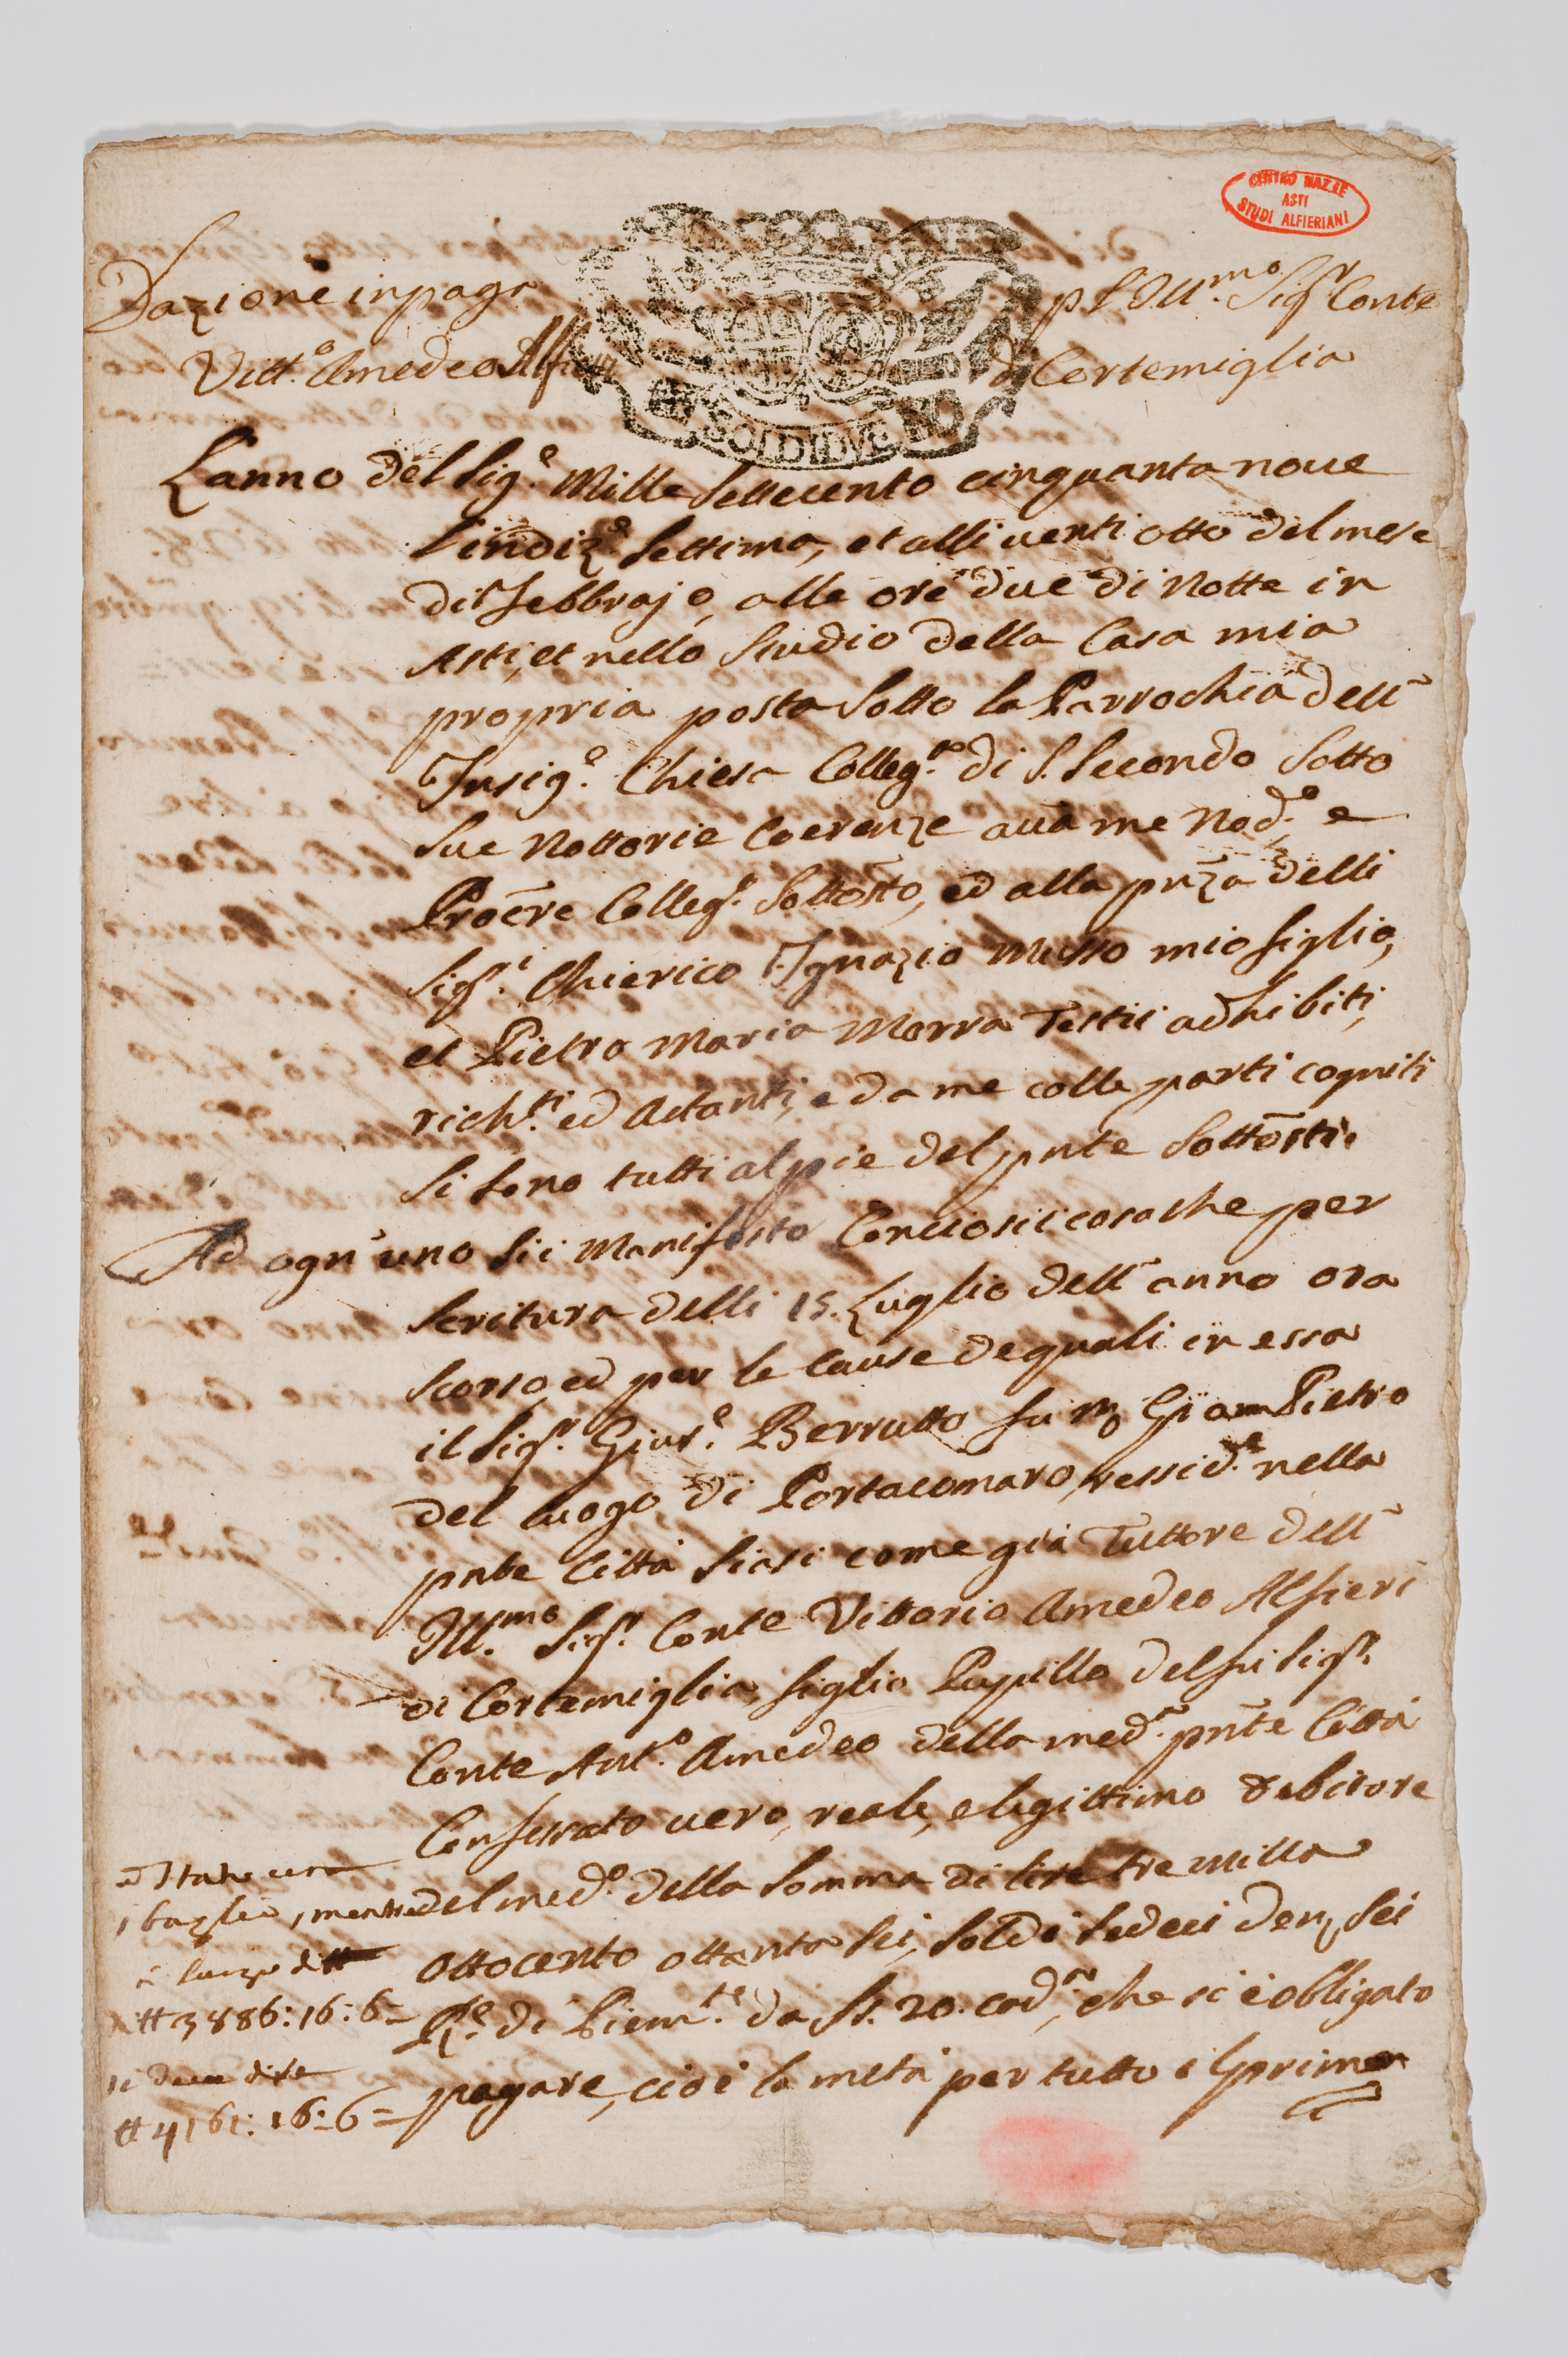 CENTRO NAZ.LE
ASTI
STUDI ALFIERIANI
Dazione in paga p l'Ill.mo Sig.r Conte
Vitt.o Amedeo Alfieri di Cortemiglia
SOLDI DVE
L'anno del Sig.e Mille Settecento cinquanta noue
l'indiz.e Settima, et alli uenti otto del mese
di Febbrajo, alle ore due di Notte in
Asti, et nello Studio della Casa mia
propria posta Sotto la Parrochia dell'
Insig.e Chiesa Colleg.ta di S. Secondo Sotto
Sue Nottorie Coerenze auā me Nod.o e
Procre Colleg.o Sottostō, ed alla pnza delli
Sig.ri Chierico Ignazio Musso mio figlio,
et Pietro Maria Morra Testii adhibiti,
rich.ti ed Astanti, e da me colle parti cogniti
Si Sono tutti al pie del pnte Sottosti.
Ad ogn'uno Sii Manifesto Conciosiicosache per
Scritura delli 15. Luglio dell'anno ora
Scorso ed per le Cause dequali in essa
il Sig.r Gius.e Berrutto fu m.o Giam Pietro
del luogo di Portacomaro, ressid.e nella
pnte Città Siasi come già Tuttore dell'
Ill.mo Sig.r Conte Vittorio Amedeo Alfieri
di Cortemiglia, figlio Pupillo del fu Sig.r
Conte Ant.o Amedeo della med.a pnte Città
Confessato uero, reale, e legittimo debitore
del med.o della Somma di lire tre milla
ottocento ottanta Sei, Soldi Sedeci den.i Sei
R.e di Piem.te da S. 20. cad.a, che si è obligato
pagare, cioè la metà per tutto il primo
sbaglio, mentre
₶ 3886:16:6=
si deue dire
₶ 4161:16:6=